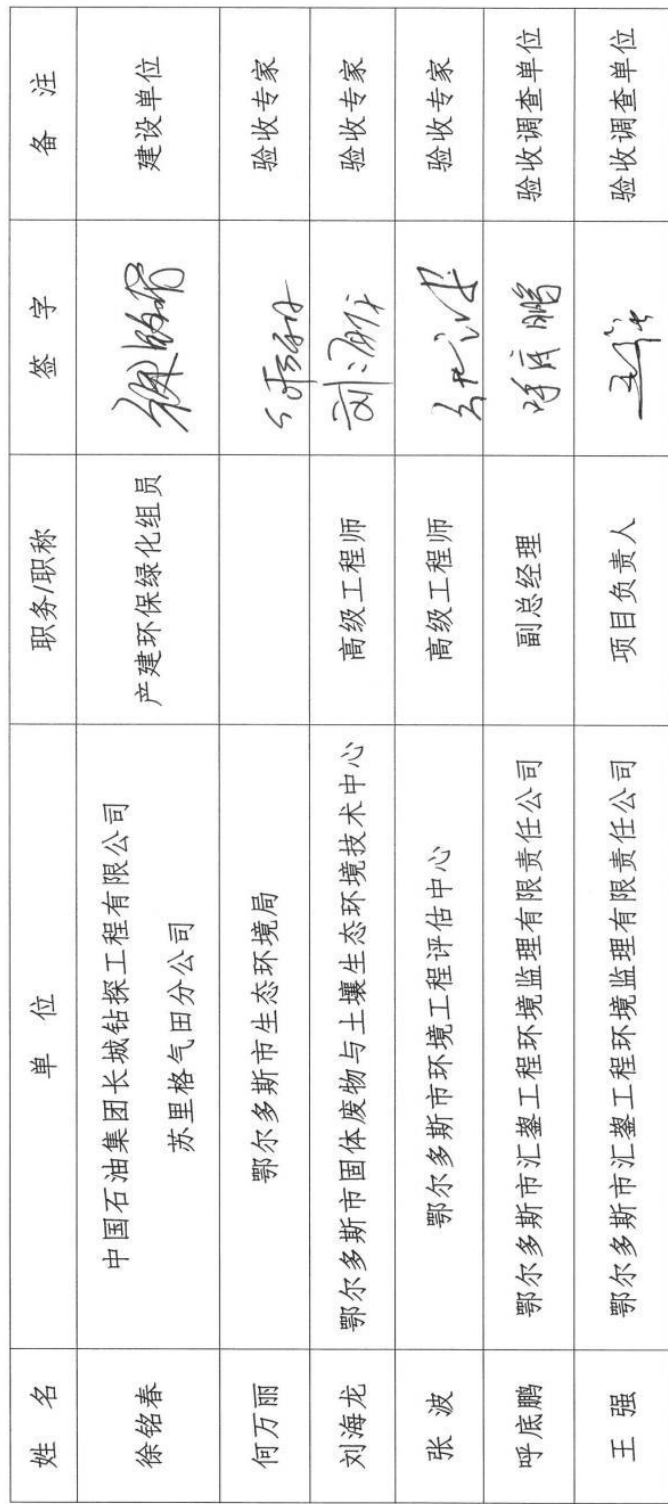 姓 名 单 位 职务/职称 签 字 备 注
徐铭春 中国石油集团长城钻探工程有限公司 产建环保绿化组员 建设单位
苏里格气田分公司
何万丽 鄂尔多斯市生态环境局 验收专家
刘海龙 鄂尔多斯市固体废物与土壤生态环境技术中心 高级工程师 验收专家
张 波 鄂尔多斯市环境工程评估中心 高级工程师 验收专家
呼底鹏 鄂尔多斯市汇蓥工程环境监理有限责任公司 副总经理 呼底鹏 验收调查单位
王 强 鄂尔多斯市汇蓥工程环境监理有限责任公司 项目负责人 验收调查单位